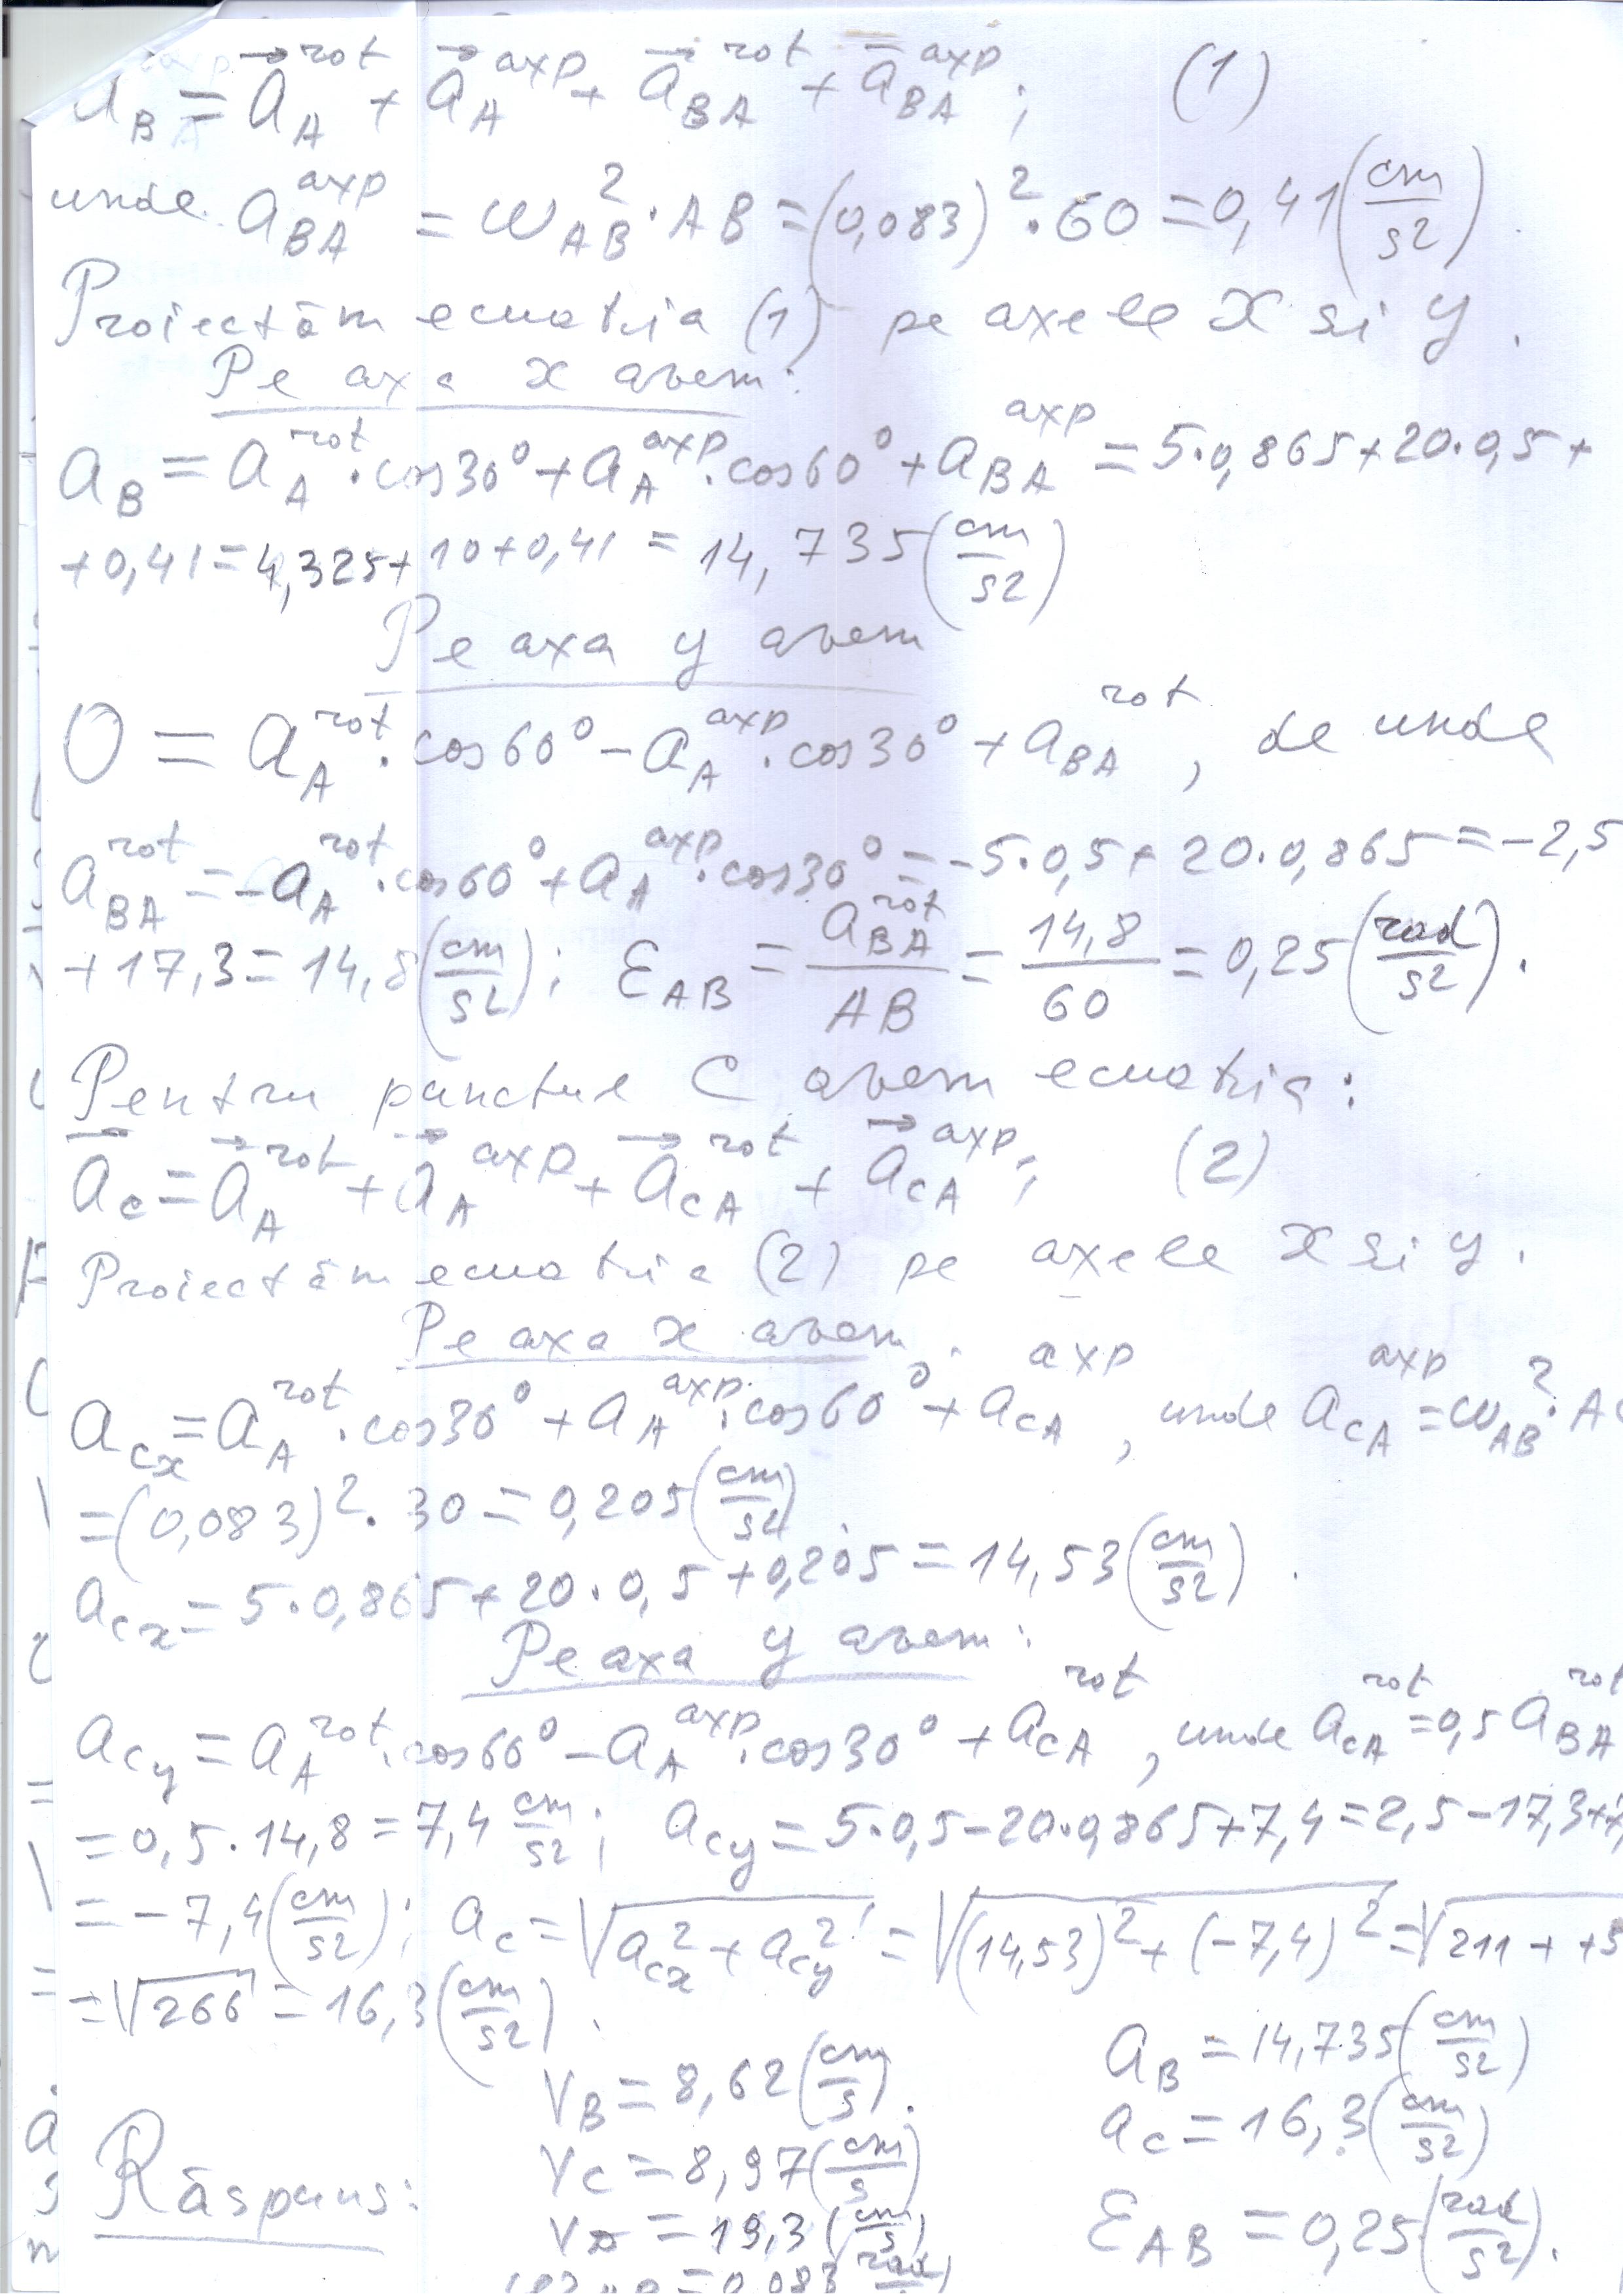 a_B = a_A^rot + a_A^axp + a_BA^rot + a_BA^axp ; (1)
unde a_BA^axp = ω_AB^2 · AB = (0,083)^2 · 60 = 0,41 (cm/s2)
Proiectăm ecuatria (1) pe axele x si y.
Pe axa x avem:
a_B = a_A^rot · cos30° + a_A^axp · cos60° + a_BA^axp = 5·0,865 + 20·0,5 +
+ 0,41 = 4,325 + 10 + 0,41 = 14,735 (cm/s2)
Pe axa y avem
0 = a_A^rot · cos60° - a_A^axp · cos30° + a_BA^rot , de unde
a_BA^rot = -a_A^rot · cos60° + a_A^axp · cos30° = -5·0,5 + 20·0,865 = -2,5
+ 17,3 = 14,8 (cm/s2) ; ε_AB = a_BA^rot / AB = 14,8 / 60 = 0,25 (rad/s2).
Pentru punctul C avem ecuatria:
a_C = a_A^rot + a_A^axp + a_CA^rot + a_CA^axp ; (2)
Proiectăm ecuatria (2) pe axele x si y.
Pe axa x avem:
a_Cx = a_A^rot · cos30° + a_A^axp · cos60° + a_CA^axp , unde a_CA^axp = ω_AB^2 ·
= (0,083)^2 · 30 = 0,205 (cm/s2)
a_Cx = 5·0,865 + 20·0,5 + 0,205 = 14,53 (cm/s2).
Pe axa y avem:
a_Cy = a_A^rot · cos60° - a_A^axp · cos30° + a_CA^rot , unde a_CA^rot = 0,5 a_BA^rot
= 0,5 · 14,8 = 7,4 cm/s2 ; a_Cy = 5·0,5 - 20·0,865 + 7,4 = 2,5 - 17,3 +
= -7,4 (cm/s2) ; a_C = √(a_Cx^2 + a_Cy^2) = √((14,53)^2 + (-7,4)^2) = √211 + +5
= √266 = 16,3 (cm/s2).
Răspuns:
V_B = 8,62 (cm/s).
V_C = 8,97 (cm/s)
V_A = 19,3 (cm/s)
= 0,083 rad
a_B = 14,735 (cm/s2)
a_C = 16,3 (cm/s2)
ε_AB = 0,25 (rad/s2).